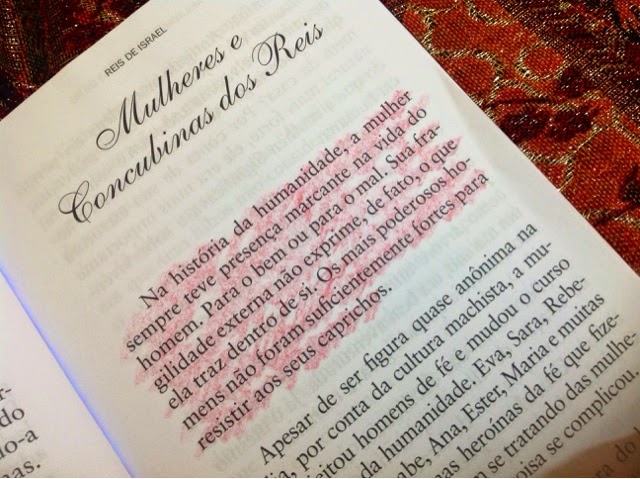 REIS DE ISRAEL
Mulheres e
Concubinas dos Reis
Na história da humanidade, a mulher
sempre teve presença marcante na vida do
homem. Para o bem ou para o mal. Sua fra-
gilidade externa não exprime, de fato, o que
ela traz dentro de si. Os mais poderosos ho-
mens não foram suficientemente fortes para
resistir aos seus caprichos.
Apesar de ser figura quase anônima na
por conta da cultura machista, a mu-
homens de fé e mudou o curso
da humanidade. Eva, Sara, Rebe-
Ana, Ester, Maria e muitas
heroínas da fé que fize-
se tratando das mulhe-
se complicou.
do
lo-a
as.